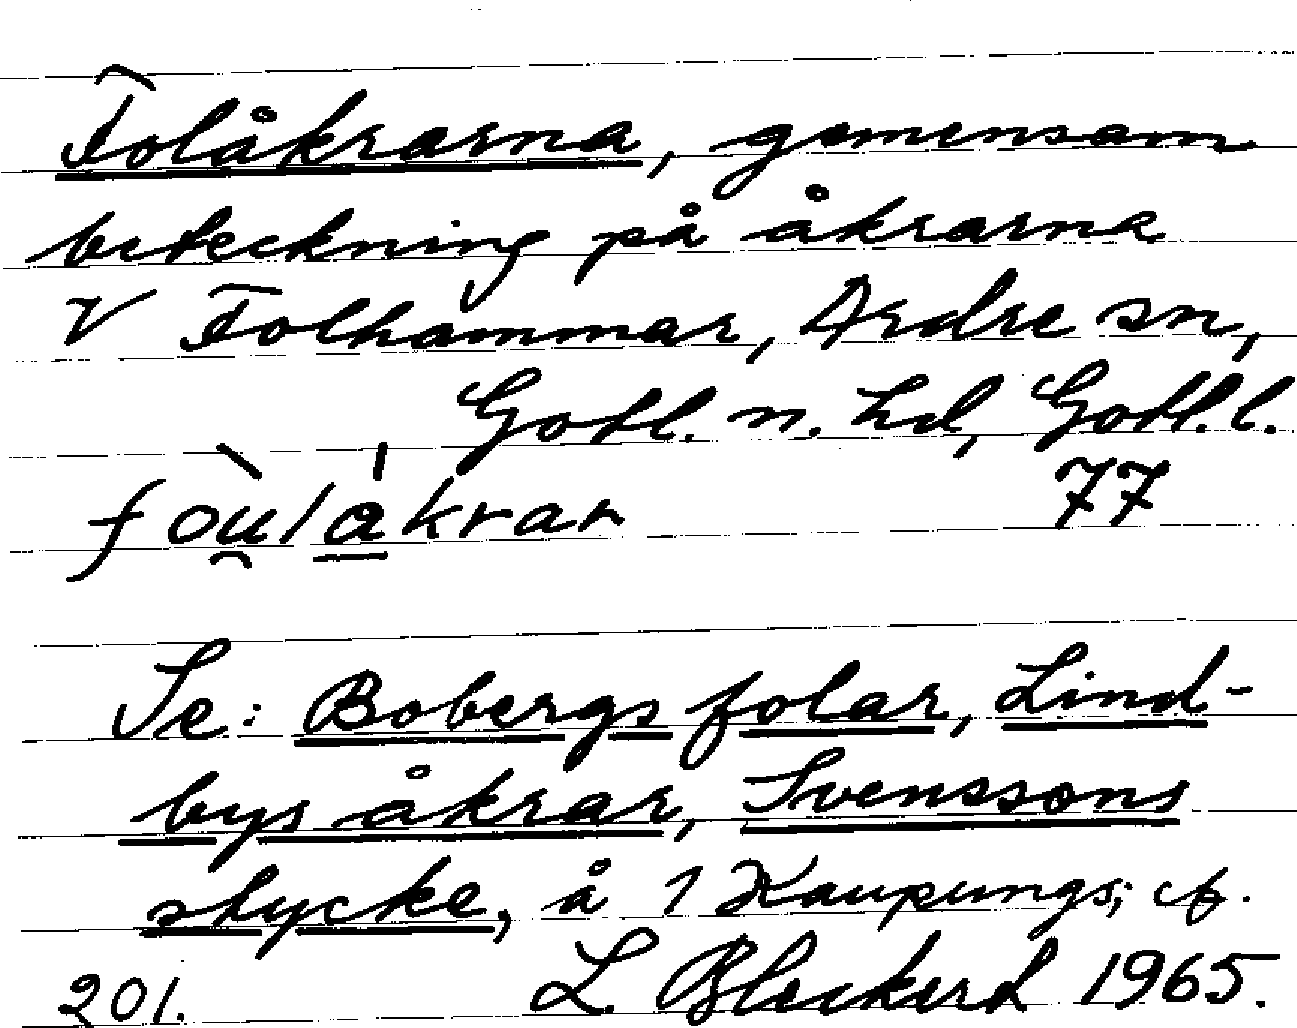 Folåkrarna, gemensam
beteckning på åkrarna
V Folhammar, Ardre sn,
Gotl. n. hd, Gotl. l.
fòu̯lákrar 77
Se: Bobergs folar, Lind-
bys åkrar, Svenssons
stycke, å 1 Kaupungs; cf.
201. L. Bleckert 1965.